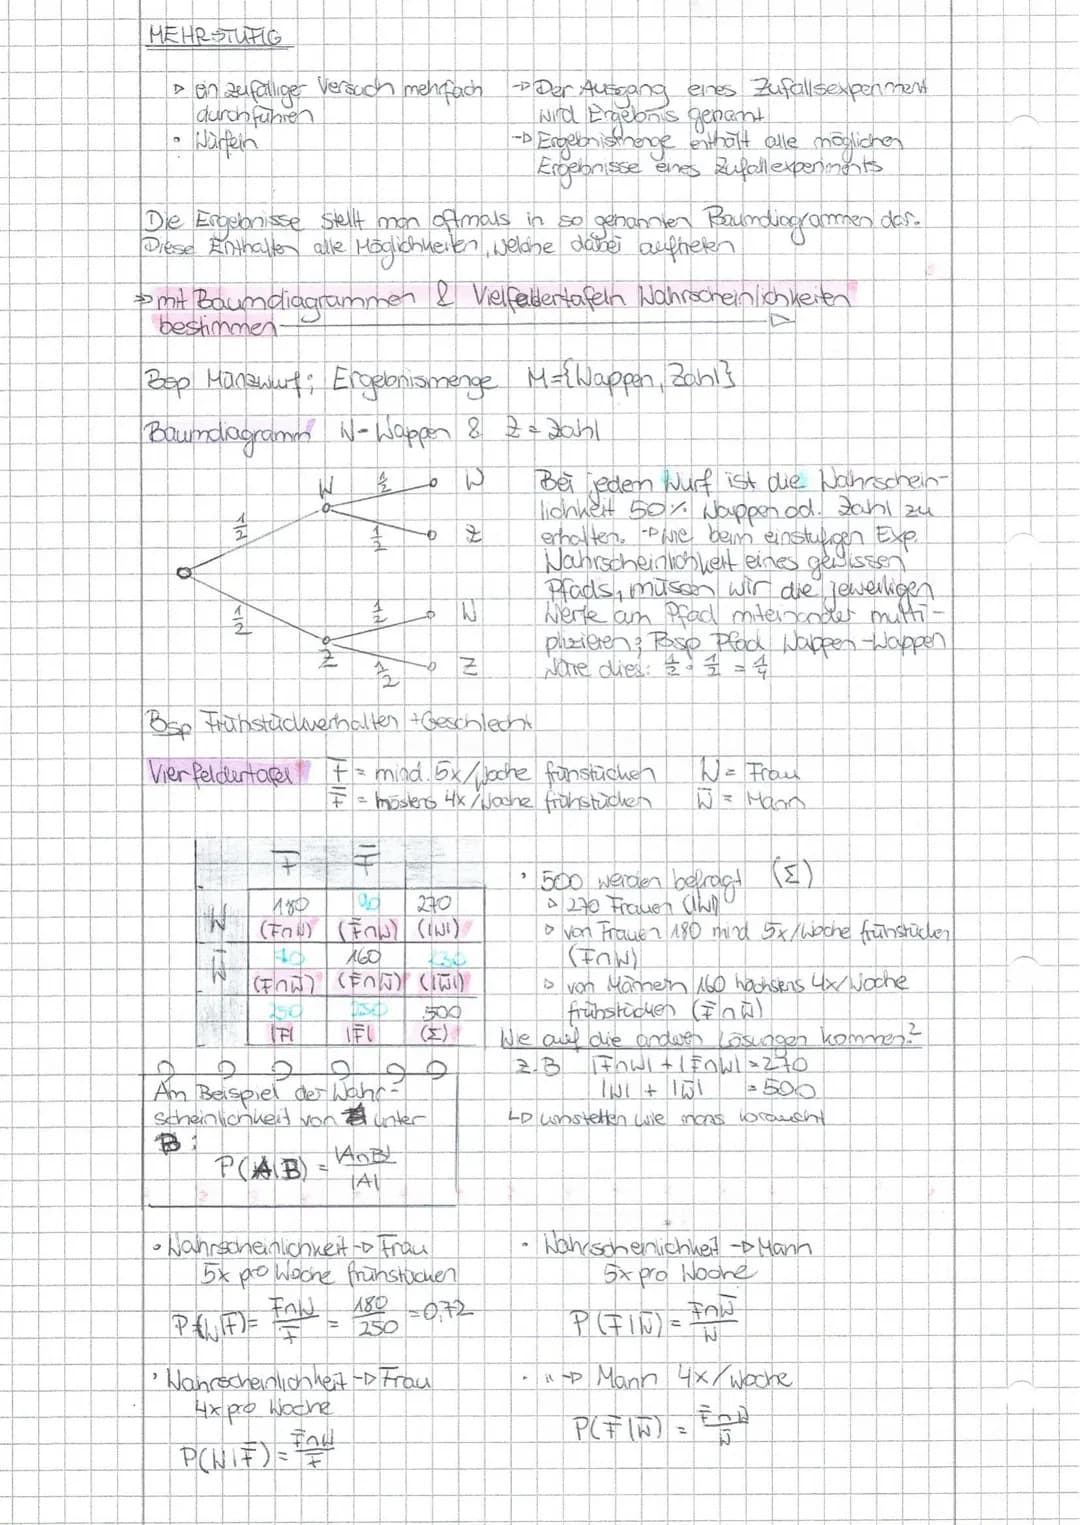 MEHRSTUFIG
▷ ein zufälliger Versuch mehrfach
durchführen
• Würfeln
→ Der Ausgang eines Zufallsexperiment
wird Ergebnis genannt
→ Ergebnismenge enthält alle möglichen
Ergebnisse eines Zufallexperiments
Die Ergebnisse stellt man oftmals in so genannten Baumdiagrammen dar.
Diese Enthalten alle Möglichkeiten, welche dabei auftreten
⇒ mit Baumdiagrammen & Vielfeldertafeln Wahrscheinlichkeiten
bestimmen
Bsp Münzwurf; Ergebnismenge M={Wappen, Zahl}
Baumdiagramm W-Wappen & Z = Zahl
W 1/2 W
1/2 1/2 Z
1/2 1/2 W
Z 1/2 Z
Bei jedem Wurf ist die Wahrschein-
lichkeit 50% Wappen od. Zahl zu
erhalten. → wie beim einstufigen Exp.
Wahrscheinlichkeit eines gewissen
Pfads, müssen wir die jeweiligen
Werte am Pfad miteinander multi-
plizieren; Bsp Pfad Wappen-Wappen
wäre dies: 1/2 · 1/2 = 1/4
Bsp Frühstückverhalten + Geschlecht
Vierfeldertafel F = mind. 5x/Woche frünstücken W = Frau
F̅ = mösters 4x/Woche frühstücken W̅ = Mann
F F̅
W 180 90 270
(F∩W) (F̅∩W) (|W|)
W̅ 70 160 230
(F∩W̅) (F̅∩W̅) (|W̅|)
250 250 500
|F| |F̅| (Σ)
• 500 werden befragt (Σ)
▷ 270 Frauen (|W|)
▷ von Frauen 180 mind 5x/Woche frühstücken
(F∩W)
▷ von Männern 160 höchsens 4x/Woche
frühstücken (F̅∩W̅)
Wie auf die anderen Lösungen kommen?
z.B |F∩W| + |F̅∩W| = 270
|W| + |W̅| = 500
↳ umstellen wie mans braucht
Am Beispiel der Wahr-
scheinlichkeit von A unter
B:
P(A|B) = |A∩B| / |A|
• Wahrscheinlichkeit → Frau
5x pro Woche frühstücken
P(W|F) = F∩W / F = 180 / 250 = 0,72
• Wahrscheinlichkeit → Mann
5x pro Woche
P(F|W̅) = F∩W̅ / W̅
• Wahrscheinlichkeit → Frau
4x pro Woche
P(W|F̅) = F̅∩W / F̅
• " → Mann 4x/Woche
P(F̅|W̅) = F̅∩W̅ / W̅